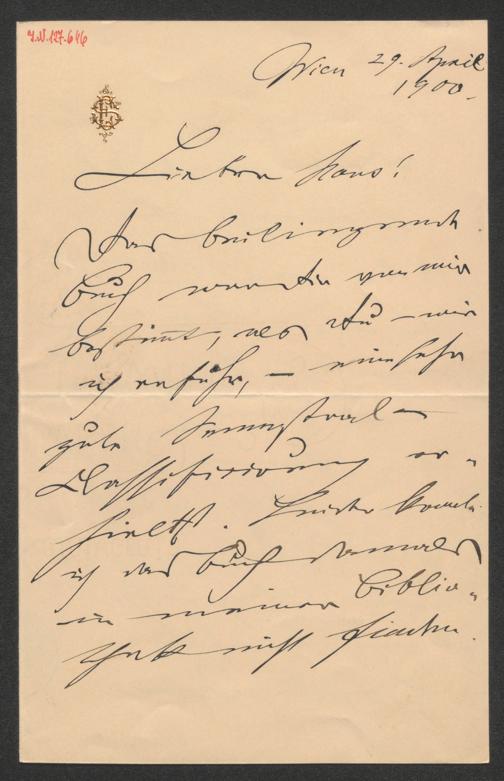 I.N. 127.646
Wien 29. April
1900.
Lieber Hans!
Das beiliegende
Buch war Dir von mir
bestimmt, als Du – wie
ich erfuhr, – eine sehr
gute Semestral-
Classificirung er-
hieltst. Leider konnte
ich das Buch damals
in meiner Biblio-
thek nicht finden.